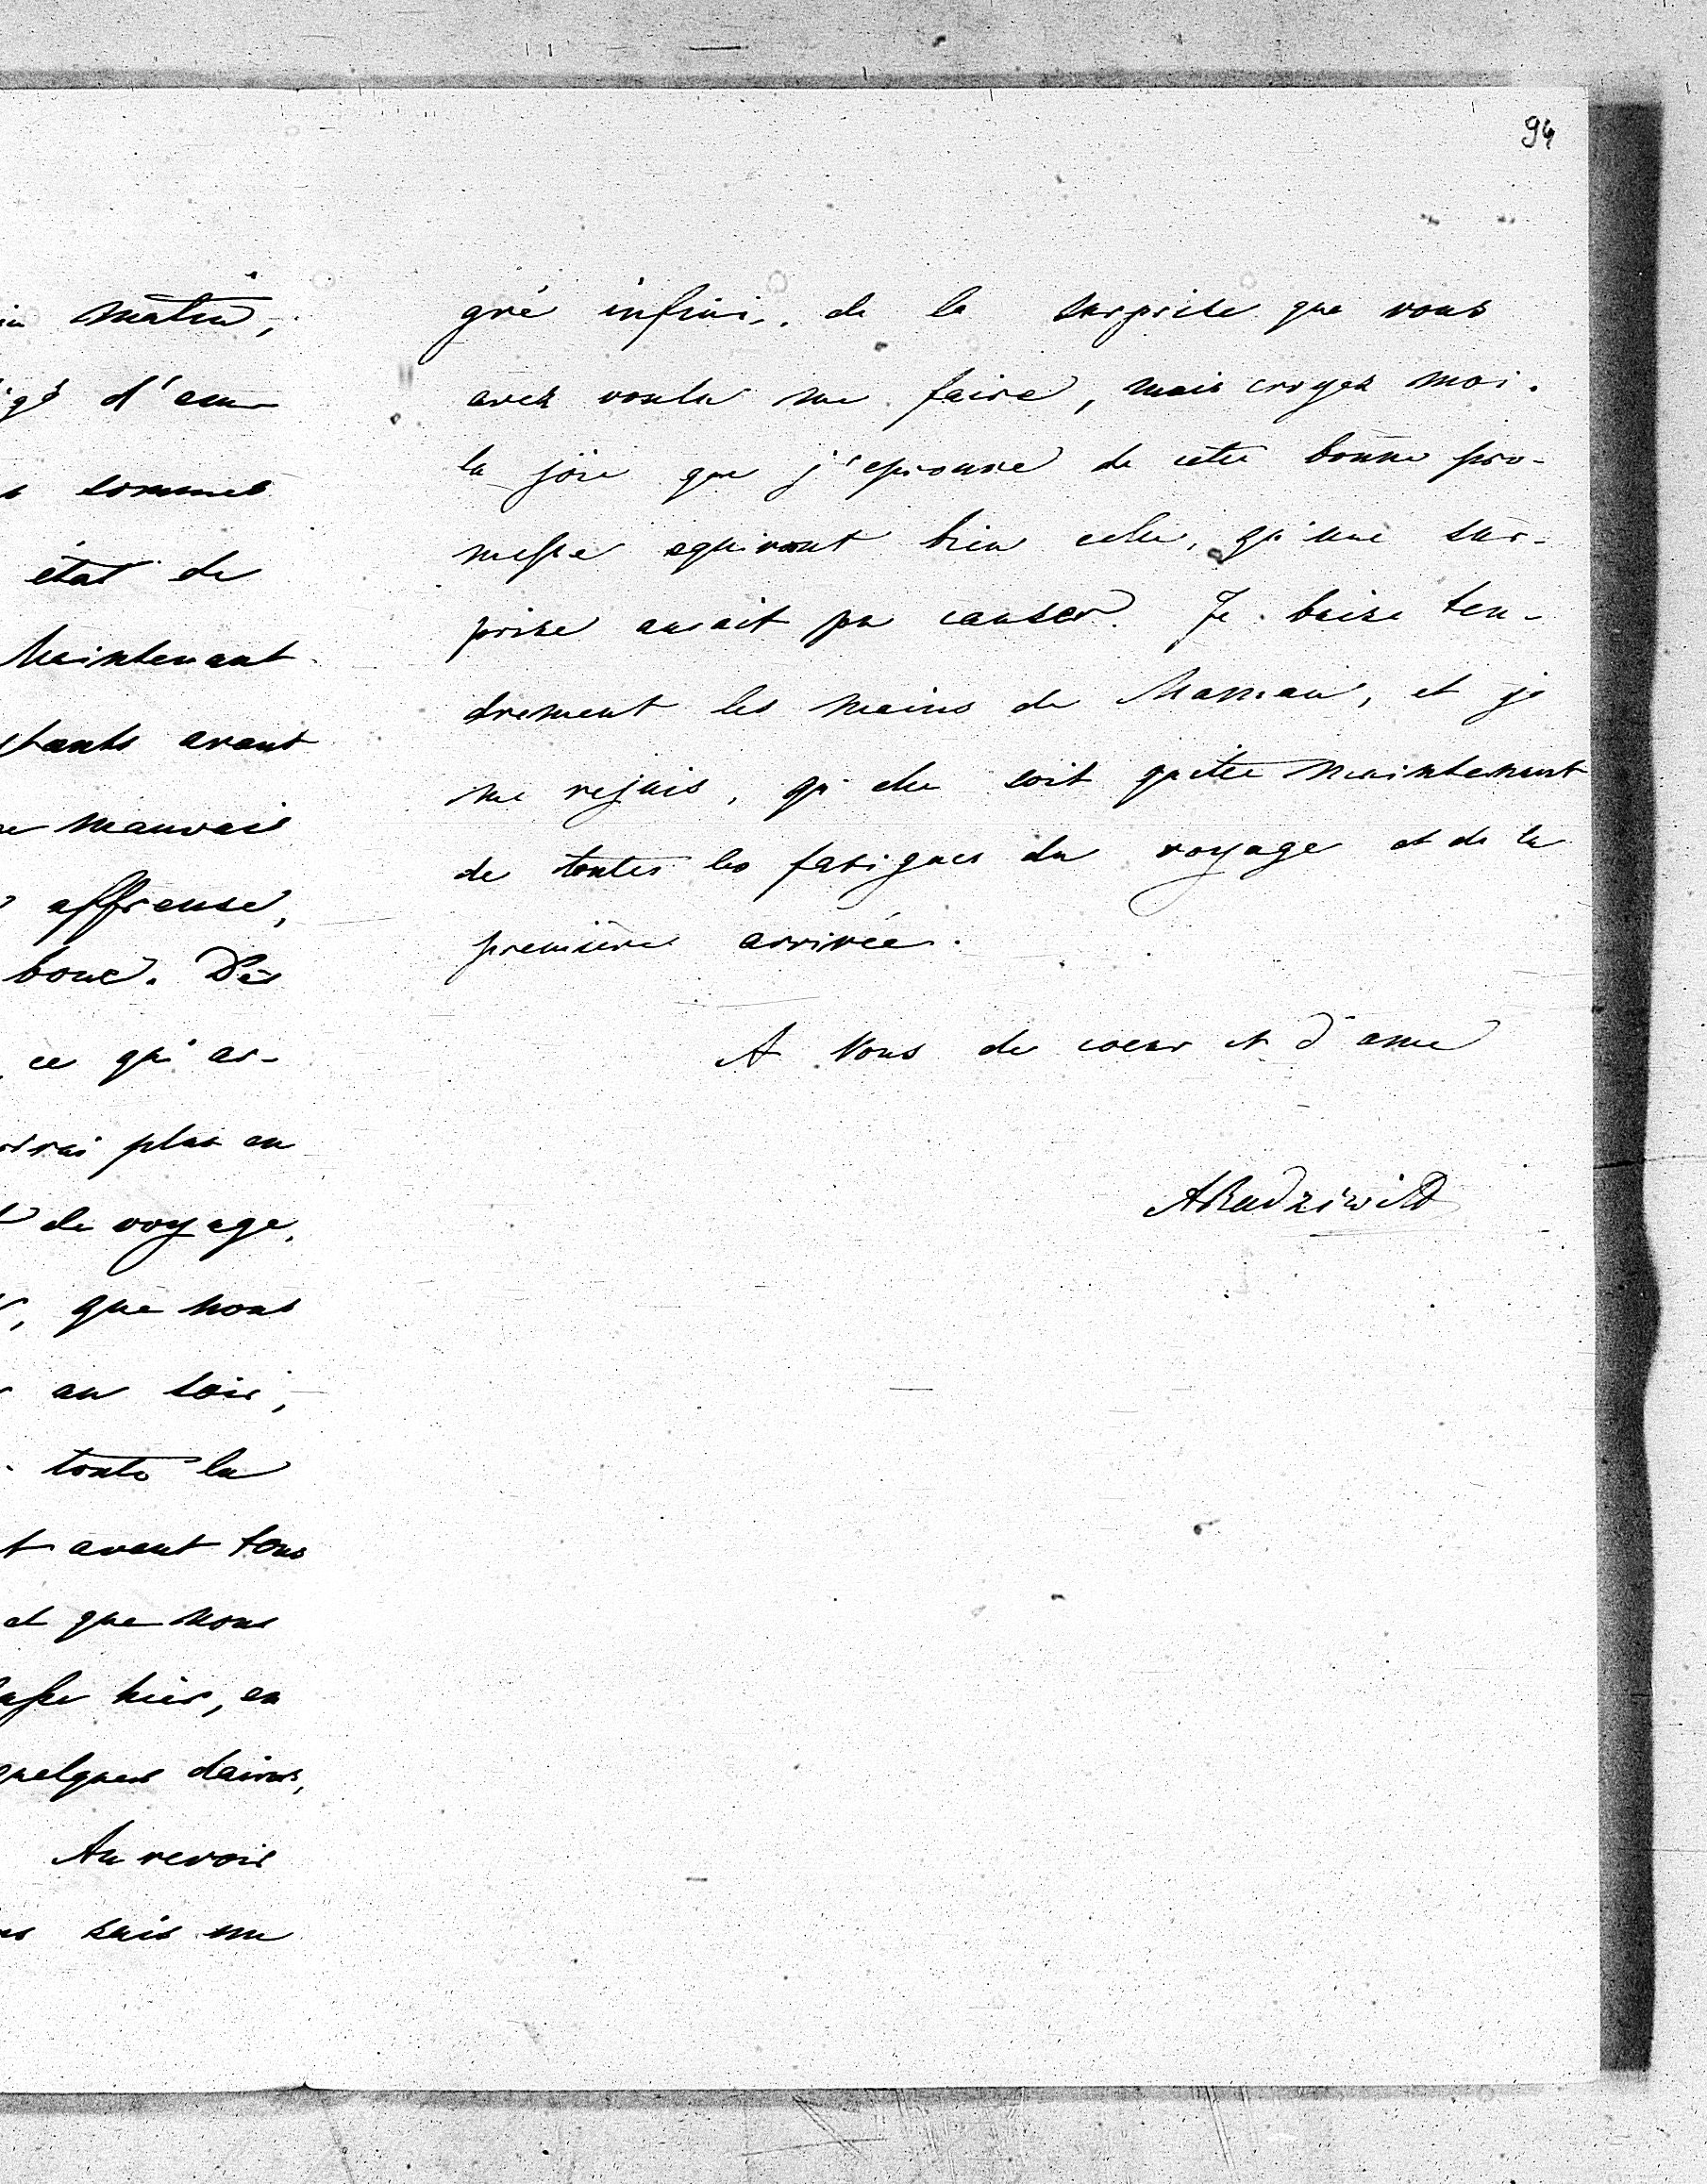 94
matin,
d'em-
sommes
état de
Maintenant
avant
mauvais
affreuse,
boue. Dès
ce qu' ar-
plus en
de voyage,
, que nous
au soir,
toute la
avant tous
et que nous
hier, en
quelques
Au revoir
sais un
gré infini, de la surprise que vous
avez voulu me faire, mais croyez moi.
la joie que j'eprouve de cette bonne pro-
messe equivaut bien celle, qu'une sur-
prise aurait pu causer. Je baise ten-
drement les mains de Maman, et je
me rejuis, qu'elle soit quitte maintenant
de toutes les fatigues du voyage et de la
première arrivée.
A Vous de coeur et d'ame
ARadziwill